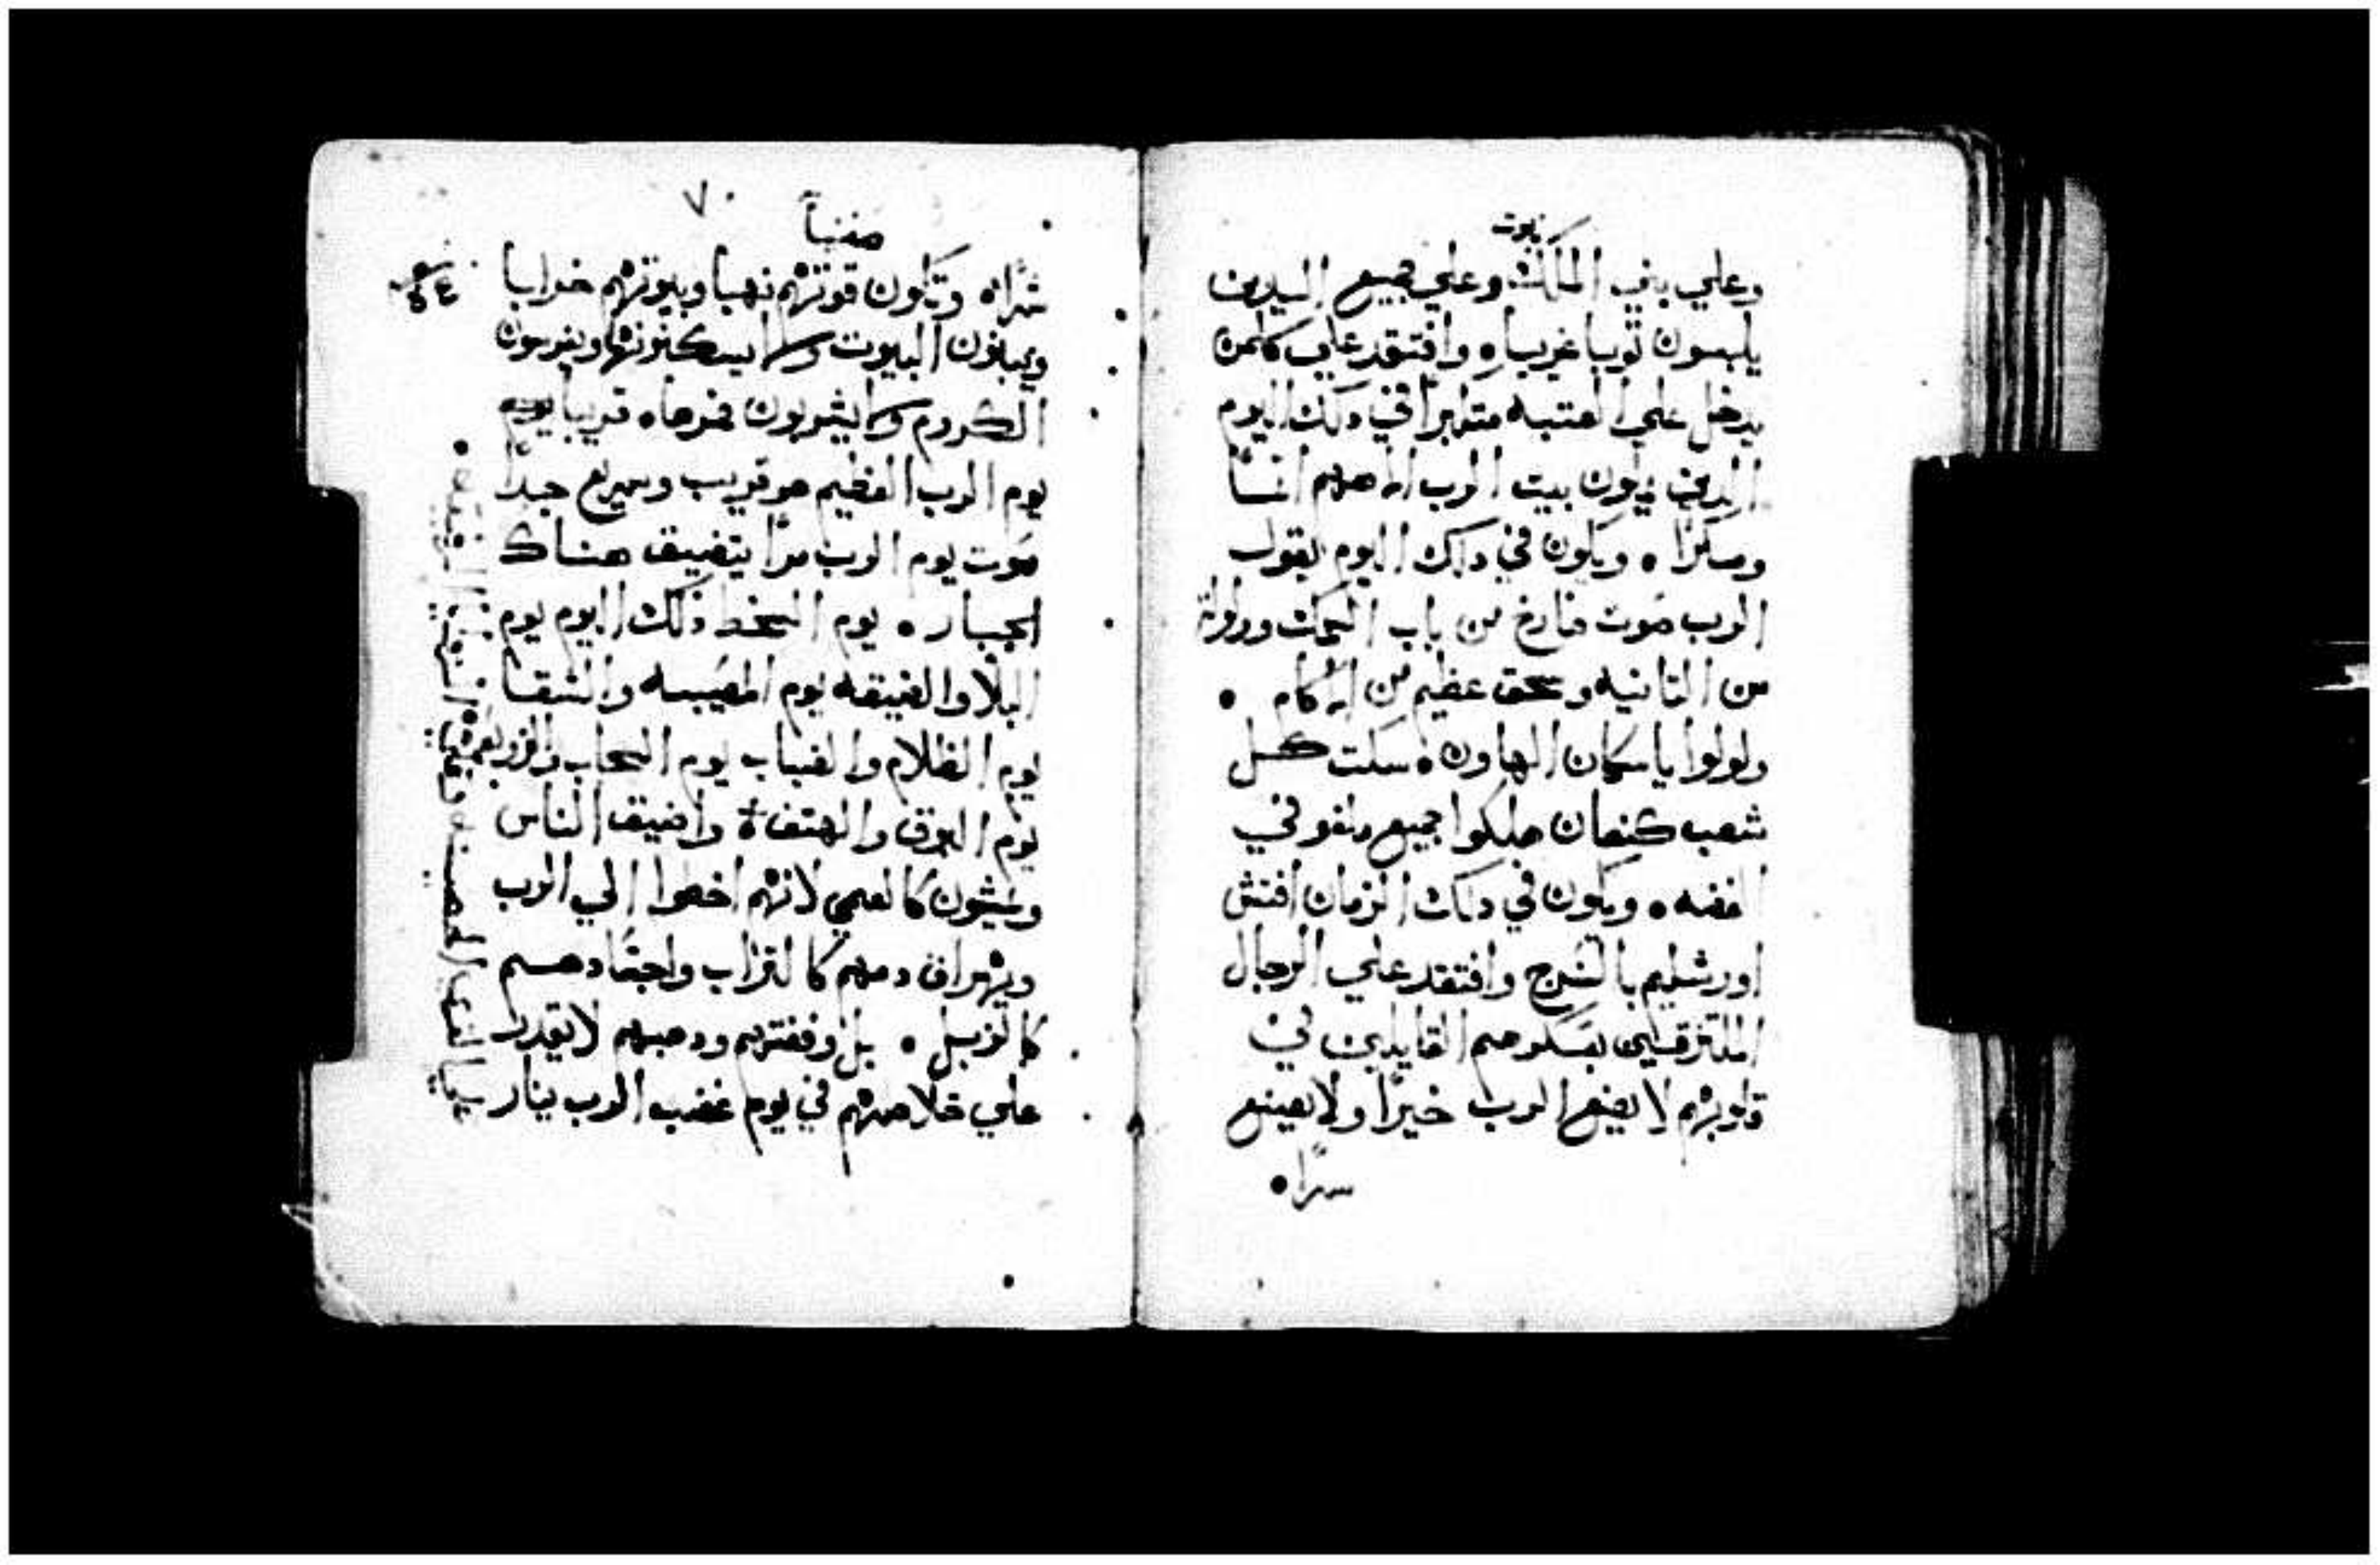 نبوت
وعلي بني الملك وعلي جميع الدين
يلبسون ثوبا غريباه وافتقد علي كلمن
يدخل علي العتبه متظاهرا في دلك اليوم
الدين يملون بيت الرب الاههم انسا
ومكرا ه ويكون في دلك اليوم يقول
الرب صوت صارخ من باب
من الثانيه وسحق عظيم من الاكام ه
ولولوا يا سكان الهاون ه سكت كل
شعب كنعان هلكوا جميع
الفضه ه ويكون في دلك الزمان افتش
اورشليم بالسرج وافتقد علي الرجال
القايلين في
قلوبهم لا يصنع الرب خيرا ولا يصنع
شرا ه
٧٠
صفنيا
شرا ه وتكون قوتهم نهبا وبيوتهم خرابا
ويبنون البيوت ولا يسكنونها ويغرسون
الكروم ولا يشربون خمرها ه قريبا يوم
يوم الرب العظيم هو قريب وسريع جدا
صوت يوم الرب مرا يتضيق هناك
الجبار ه يوم السخط ذلك اليوم يوم
البلا والضيقه يوم المصيبه والشقا
يوم الظلام والضباب يوم السحاب والزوبعه
يوم البوق والهتفاة واضيق الناس
ويمشون كالعمي لانهم اخطوا الي الرب
ويهراق دمهم كالتراب واجسادهم
كالزبل ه بل وفضتهم ودهبهم لا يقدر
علي خلاصهم في يوم غضب الرب بنار
علي القري الحصينه وعلي